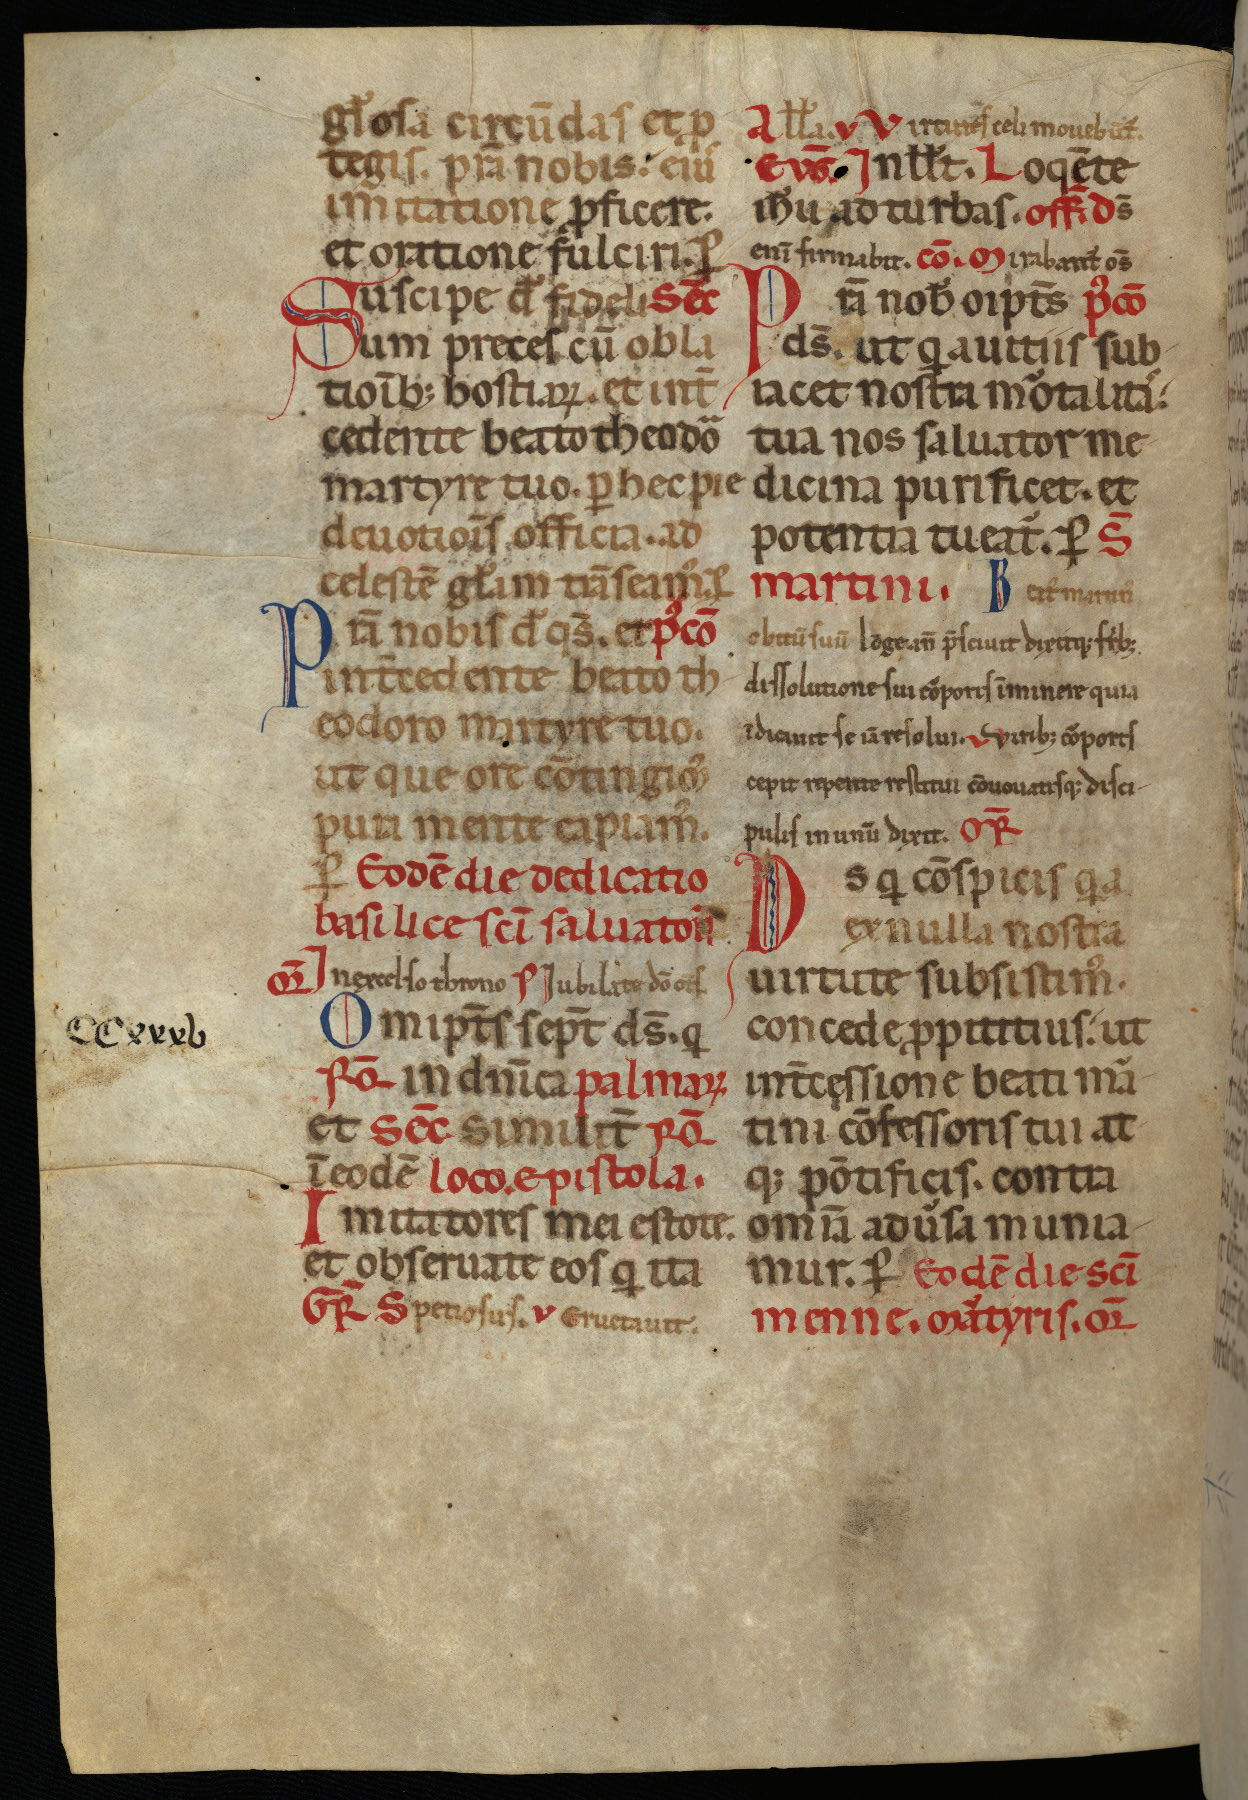 gl̄osa circūdas et ꝓ
tegis. pr̄a nobis. eiꝰ
im̄itatione ꝓficere.
et oratione fulciri. ꝑ
Suscipe dn̄e fideliū Sec̄
um preces cū obla
tioīb; hostiaꝝ. et int̄
cedente beato theodoro
martyre tuo. ꝑ hec pie
deuotiois̄ officia. ad
celestē gl̄am trāseamꝰ. ꝑ
Pr̄a nobis dn̄e qs̄. et pꝰ cō
int̄cedente beato th
eodoro martyre tuo.
ut que ore cōtingimꝰ
pura mente capiamꝰ.
ꝑ Eodē die dedicatio
basilice sc̄i saluatoris
Or̄ In excelso throno ps Jubilate dō om̄s
Omip̄ts sep̄t ds̄. q
CCxxxv
rō in dn̄ica palmaꝝ
et Sec̄ similit̄ rō
ī eodē loco. epistola.
Imitatores mei estote.
et obseruate eos q ita
Gr̄ Speciosus. v Eructauit.
All̄a. v Virtutes celi mouebūt̄.
Evḡ. In ill̄ t. Loqēte
ih̄u ad turbas. off̄ Ds̄
eni firmabit. cō. Mirabant̄ om̄s
Pr̄a nob̄ oip̄ts pꝰ cō
ds̄. ut q a uitiis sub
iacet nostra mortalitas.
tua nos saluator me
dicina purificet. et
potentia tueat̄. ꝑ S̄
martini. Beatꝰ martinꝰ
obitū suū longe an̄ p̄sciuit dixitq; fr̄ib;
dissolutione sui cōporis īminere quia
īdicauit se iā resolui. v Virib; cōporis
cepit repente restitui cōuocatisq; disci-
pulis in unū dixit. Or̄
Ds q cōspicis q a
ex nulla nostra
uirtute subsistimꝰ.
concede ꝓpititius. ut
int̄cessione beati mar
tini cōfessoris tui at
q; pōtificis. contra
omīa adūsa munia
mur. ꝑ Eodē die sc̄i
menne. martyris. Or̄